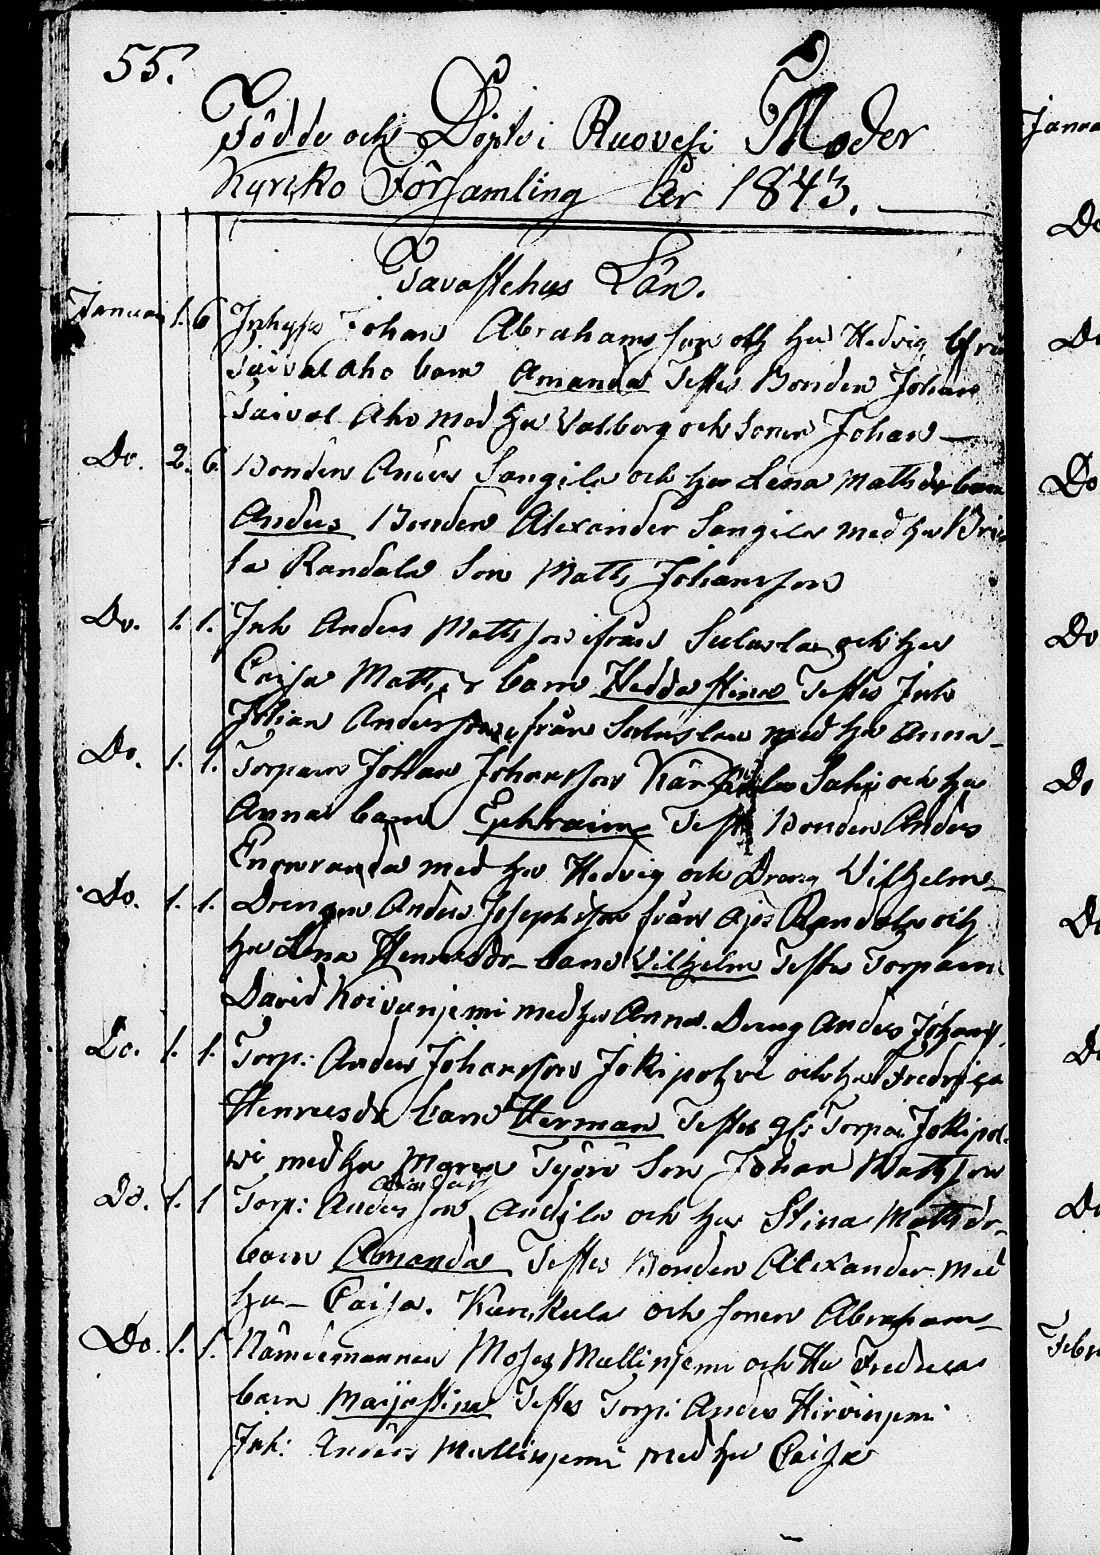 55.
Födde och Döpte i Ruovesi Moder
Kyrcko Församling År 1843.
Tavastehus Län.
Januari 1. 6 Inhyss Johan Abrahamsson och hu Hedvig
Taival aho barn Amanda Testes Bonden Johan
Taival Aho med hu Valborg och Sonen Johan
Do. 2. 6. Bonden Anders Sangila och hu Lena Mattsdr barn
Anders Bonden Alexander Sangila med hu Bri
ta Randala Son Matts Johansson
Do. 1. 1. Inh Anders Mattsson ifrån och hu
Caisa Mattsdr barn Hedda Stina Testes Inh
Johan Andersson ifrån med hu Anna
Do. 1. 1. Torparn Johan Johansson och hu
Anna barn Ephraim Testes Bonden Anders
Enoranda med hu Hedvig och Dräng Vilhelm
Do. 1. 1. Drengen Anders Josephsson från Randala och
hu Lena Henriksdr barn Vilhelm Testes Torparn
David Koivuniemi med hu Anna. Dreng Anders Johans
Do. 1. 1. Torp: Anders Johansson Jokipolvi och hu Fredrica
Henricsdr barn Herman Testes Torpa: Jokipol
vi med hu Maria Son Johan Mattsson
Do. 1. 1 Torp: Andersson och hu Stina Mattsdr
barn Amanda Testes Bonden Alexander med
hu Caisa. Kurkela och sonen Abraham
Do. 1. 1. Nämdemannen Moses Mullinjemi och Hu Fredrica
barn Maija Stina Testes Torp: Anders Hirvinjemi
Inh: Anders Mullinjemi med hu Caisa
Janua
Do
Do
Do
Do
Do
Do
Do
Do
Febru